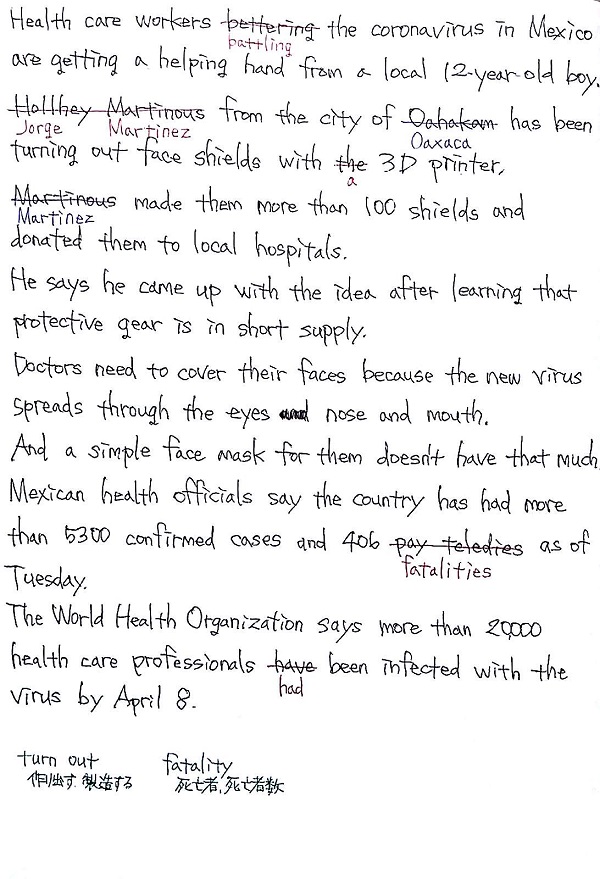 Health care workers bettering the coronavirus in Mexico
battling
are getting a helping hand from a local 12-year-old boy.
Hollhey Martinous from the city of Oahakam has been
Jorge Martinez Oaxaca
turning out face shields with the 3D printer.
a
Martinous made them more than 100 shields and
Martinez
donated them to local hospitals.
He says he came up with the idea after learning that
protective gear is in short supply.
Doctors need to cover their faces because the new virus
spreads through the eyes and nose and mouth.
And a simple face mask for them doesn't have that much
Mexican health officials say the country has had more
than 5300 confirmed cases and 406 pay teledies as of
fatalities
Tuesday.
The World Health Organization says more than 20,000
health care professionals have been infected with the
had
virus by April 8.
turn out fatality
作り出す, 製造する 死亡者, 死亡者数